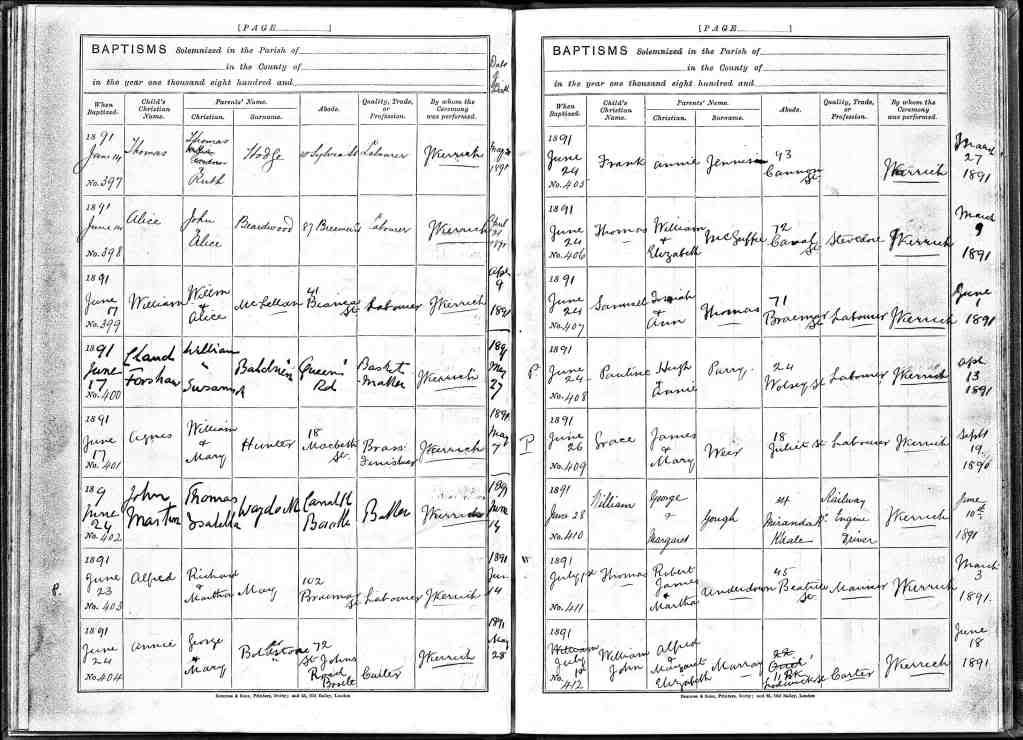 [PAGE ]
BAPTISMS Solemnized in the Parish of
in the County of
in the year one thousand eight hundred and
When Baptized. Child's Christian Name. Parents' Name. Abode. Quality, Trade, or Profession. By whom the Ceremony was performed.
Christian. Surname.
1891 June 14 No. 397 Thomas Thomas Ruth Hodge Sylvia St Labourer JKerrich 1891
1891 June 14 No. 398 Alice John & Alice Beardwood 87 Labourer JKerrich 1891
1891 June 17 No. 399 William Willm & Alice McLellan 41 St Labourer JKerrich Apl 9 1891
1891 June 17 No. 400 Forshaw William Susanna Baldwin Queens Rd Basket-Maker JKerrich May 27
1891 June 17 No. 401 Agnes William & Mary Hunter 18 Macbeth St Brass Finisher JKerrich 1891 May 7
June 24 No. 402 John Martin Thomas Isabella Bootle JKerrich June 14
P.
1891 June 23 No. 403 Alfred Richard & Martha May 102 Braemar St Labourer JKerrich 1891 Jun 14
1891 June 24 No. 404 Annie George & Mary Boldstone 72 St Johns Road Bootle Carter JKerrich 1891 May 28
Bemrose & Sons, Printers, Derby; and 23, Old Bailey, London
[PAGE ]
BAPTISMS Solemnized in the Parish of
in the County of
in the year one thousand eight hundred and
When Baptized. Child's Christian Name. Parents' Name. Abode. Quality, Trade, or Profession. By whom the Ceremony was performed.
Christian. Surname.
1891 June 24 No. 405 Frank Annie Jennison 43 Cannon St JKerrich March 27 1891
1891 June 24 No. 406 Thomas William & Elizabeth McGuffie 72 Canal St Stevedore JKerrich March 9 1891
1891 June 24 No. 407 Samuel Isaiah & Ann Thomas 71 Braemar St Labourer JKerrich June 1 1891
P
1891 June 24 No. 408 Pauline Hugh & Annie Parry 24 Wolsey St Labourer JKerrich Apl 13 1891
P
1891 June 26 No. 409 Grace James & Mary Weir 18 Juliet St Labourer JKerrich Sept 19 1890
1891 June 28 No. 410 William George & Margaret Gough Miranda Rd Railway Engine Driver JKerrich June 10th 1891
1891 July 1st No. 411 Thomas Robert James & Martha Underdown 45 Beatrice St Mariner JKerrich March 3 1891
1891 July 1st No. 412 William John Alfred & Margaret Elizabeth Murray Carter JKerrich June 18 1891
Bemrose & Sons, Printers, Derby; and 23, Old Bailey, London